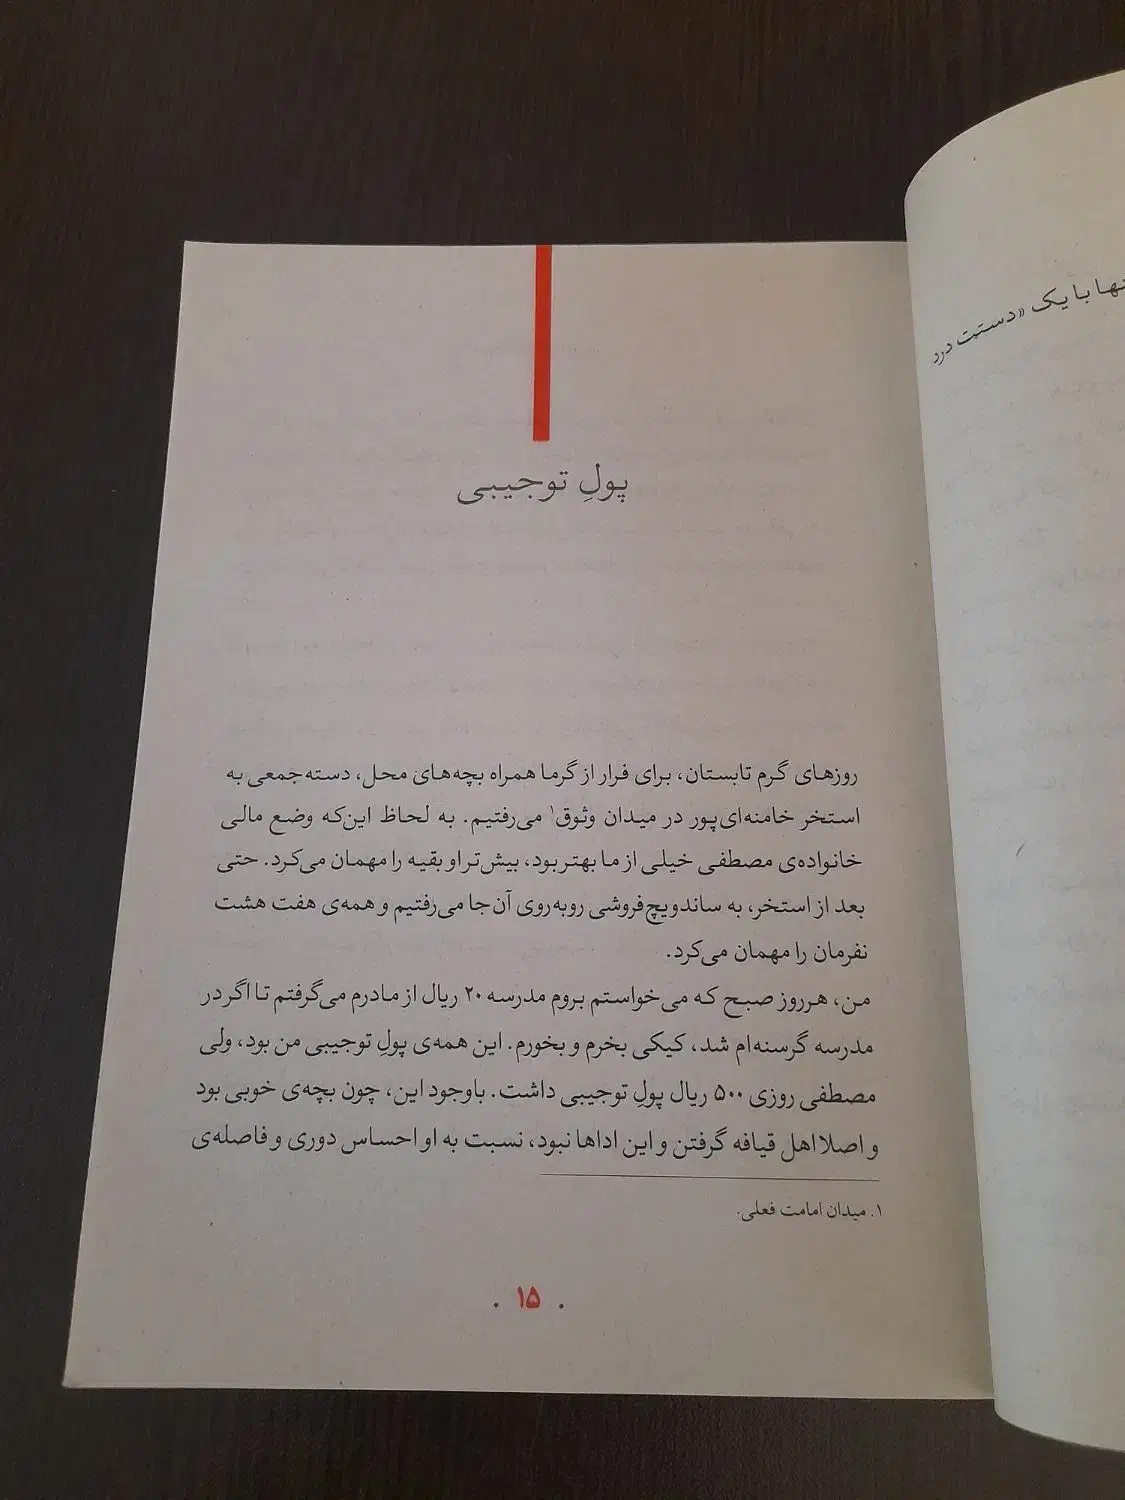 پولِ توجیبی
روزهای گرم تابستان، برای فرار از گرما همراه بچه‌های محل، دسته‌جمعی به
استخر خامنه‌ای‌پور در میدان وثوق۱ می‌رفتیم. به لحاظ این‌که وضع مالی
خانواده‌ی مصطفی خیلی از ما بهتر بود، بیش‌تر او بقیه را مهمان می‌کرد. حتی
بعد از استخر، به ساندویچ‌فروشی روبه‌روی آن‌جا می‌رفتیم و همه‌ی هفت هشت
نفرمان را مهمان می‌کرد.
من، هرروز صبح که می‌خواستم بروم مدرسه ۲۰ ریال از مادرم می‌گرفتم تا اگر در
مدرسه گرسنه‌ام شد، کیکی بخرم و بخورم. این همه‌ی پولِ توجیبی من بود، ولی
مصطفی روزی ۵۰۰ ریال پولِ توجیبی داشت. باوجود این، چون بچه‌ی خوبی بود
و اصلا اهل قیافه گرفتن و این اداها نبود، نسبت به او احساس دوری و فاصله‌ی
۱. میدان امامت فعلی.
۰ ۱۵ ۰
نها با یک «دستت درد